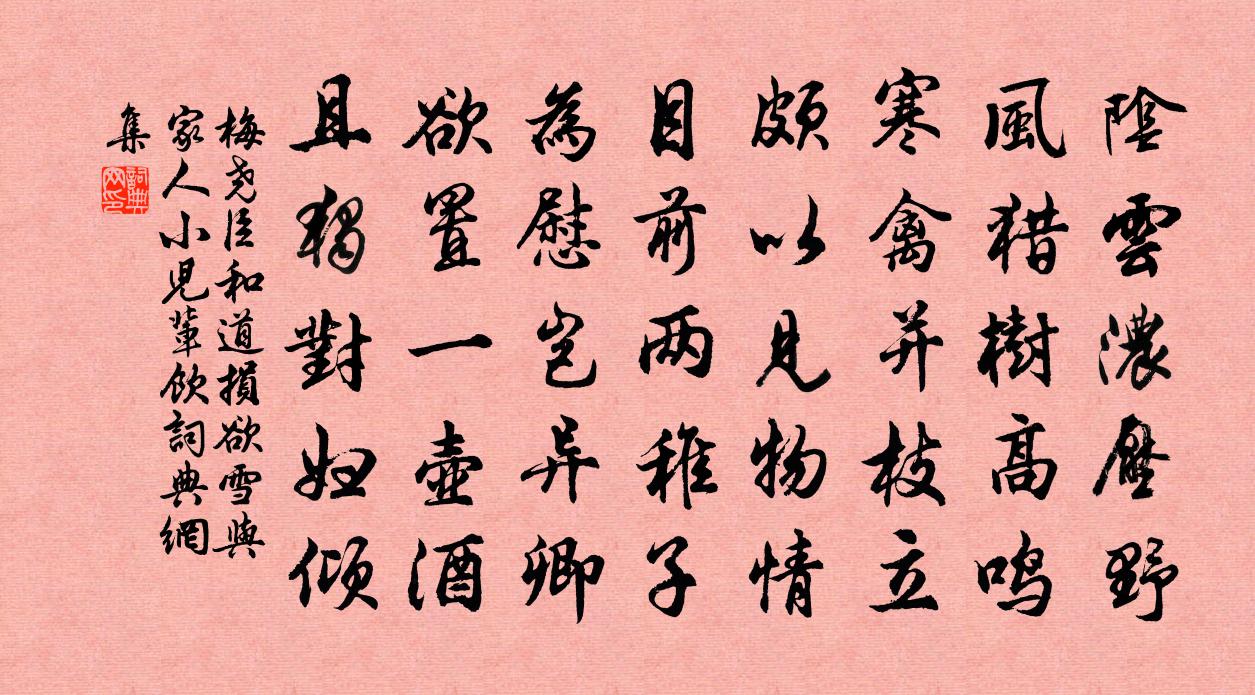 陰雲濃壓野
風猎樹高鳴
寒禽并枝立
頗以見物情
目前两稚子
為慰岂异卿
欲置一壺酒
且獨對妇倾
梅尧臣和道損欲雪與
家人小兒輩飲詞典網
集
詞典
网印